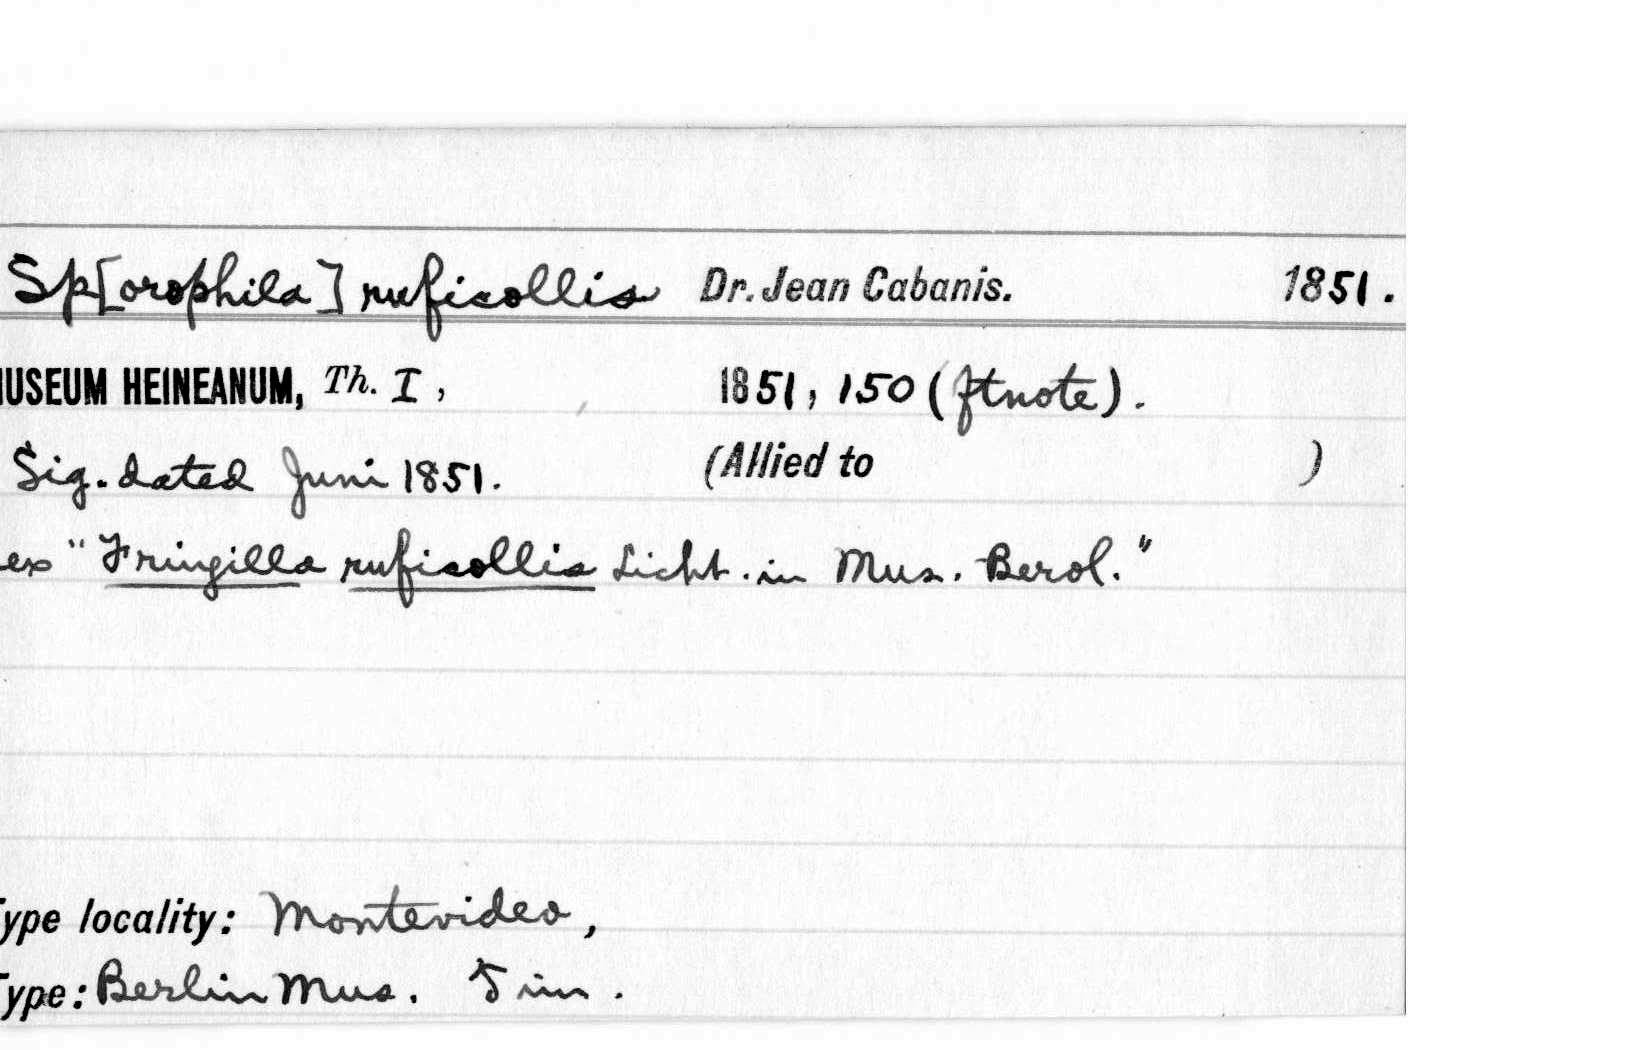 Sp[orophila] ruficollis Dr. Jean Cabanis. 1851.
MUSEUM HEINEANUM, Th. I, 1851, 150 (ftnote).
Sig. dated Juni 1851. (Allied to )
ex "Fringilla ruficollis Licht. in Mus. Berol."
Type locality: Montevideo,
Type: Berlin Mus.